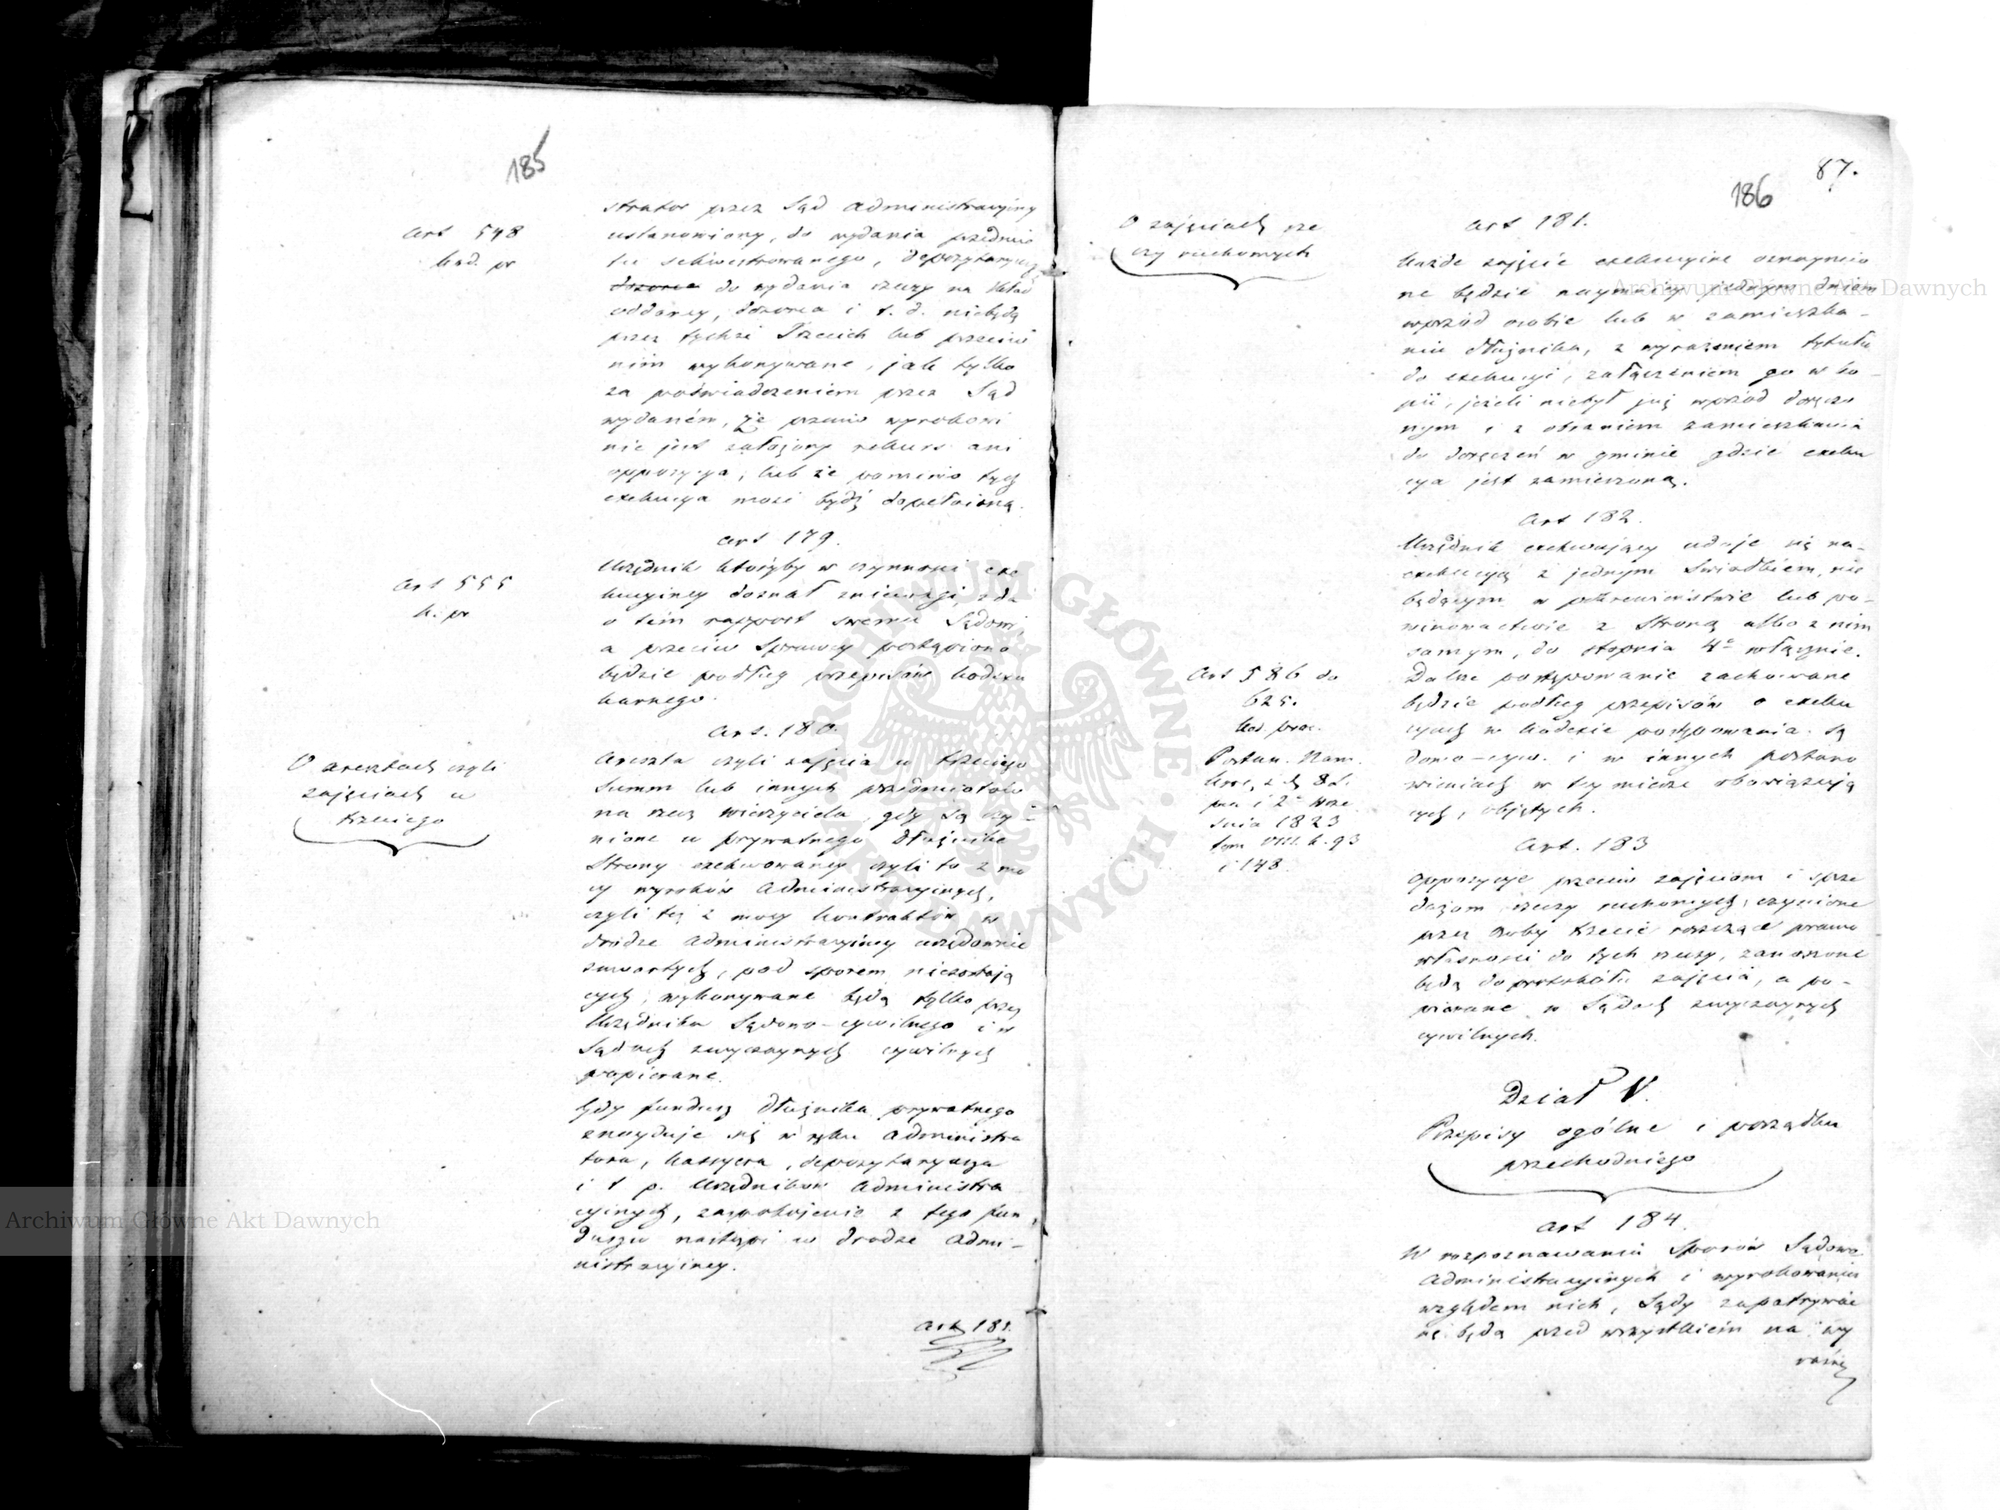 185
Art 548
Kod. pr
strator przez Sąd administracyiny
ustanowiony, do wydania przedmio
tu sekwestrowanego, depozytaryusz
dozorca do wydania rzeczy na skład
oddaney, dozorca i t. d. niebędą
przez tychże Trzecich lub przeciw
nim wykonywane, jak tylko
za poświadczeniem przez Sąd
wydaném, że przeciw wyrokowi
nie jest założony rekurs ani
oppozycya, lub że pomimo tych
exekucya może bydź dopełnioną.
Art 179.
Art 555
k. pr
Urzędnik któryby w czynności exe
kucyiney doznał zniewagi, zda
o tém rapport swemu Sądowi,
a przeciw Sprawcy postąpiono
będzie podług przepisów kodexu
karnego.
Art. 180.
O aresztach czyli
zajęciach u
trzeciego
Areszta czyli zajęcia u trzeciego
Summ lub innych przedmiotów
na rzecz wierzyciela, gdy są czy-
nione u prywatnego dłużnika
Strony exekwowaney czyli to z mo
cy wyroków administracyinych,
czyli też z mocy kontraktów w
drodze administracyiney urzędownie
zawartych, pod sporem niezostają
cych, wykonywane będą tylko przez
Urzędnika Sądowo-cywilnego i w
Sądach zwyczaynych cywilnych
popierane.
Gdy fundusz dłużnika prywatnego
znayduje się w ręku administra
tora, kassyera, depozytaryusza
i t p. Urzędników administra
cyinych, zaspokojenie z tego fun
duszu nastąpi w drodze admi-
nistracyiney.
Art 181.
87.
186
O zajęciach rze
czy ruchomych
Art 181.
Każde zajęcie exekucyine oznaymio
ne będzie naymniey jednym dniem
wprzód osobie lub w zamieszka-
niu dłużnika, z wyrażeniem tytułu
do exekucyi, załączeniem go w ko-
pii, jeżeli niebył już wprzód doręczo
nym i z obraniem zamieszkania
do doręczeń w gminie gdzie exeku
cya jest zamierzoną.
Art 182.
Urzędnik exekwujący udaje się na-
exekucyą z jednym Świadkiem, nie
będącym w pokrewieństwie lub po-
winowactwie z Stroną albo z nim
samym, do stopnia 4º włącznie.
Art 586 do
625.
Kod. proc.
Postan. Nam.
Dalsze postępowanie zachowane
będzie podług przepisów o exeku
cyach w kodexie postępowania Są
dowo-cyw. i w innych postano
wieniach w tey mierze obowiązują
cych, objętych.
śnia 1823
tom VIII. k. 93
i 148.
Art. 183
Oppozycye przeciw zajęciom i sprze
dażom rzeczy ruchomych, czynione
przez osoby trzecie roszczące prawo
własności do tych rzeczy, zanoszone
będą do protokółu zajęcia, a po-
pierane w Sądach zwyczaynych
cywilnych.
Dział V.
Przepisy ogólne i porządku
przechodniego
Art 184.
W rozpoznawaniu Sporów Sądowo
Administracyinych i wyrokowaniu
względem nich, Sądy zapatrywać
się będą przed wszystkiém na wy
raźne
Archiwum Główne Akt Dawnych
Archiwum Główne Akt Dawnych
ARCHIWUM GŁÓWNE AKT DAWNYCH